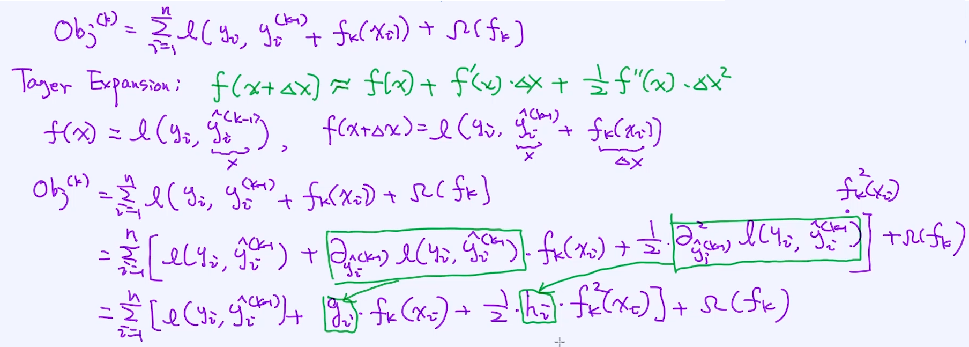 Obj^(k) = Σ_{i=1}^{n} l(y_i, y_i^(k-1) + f_k(x_i)) + Ω(f_k)
Tayer Expansion: f(x+Δx) ≈ f(x) + f'(x)·Δx + 1/2 f''(x)·Δx²
f(x) = l(y_i, ŷ_i^(k-1)), f(x+Δx) = l(y_i, ŷ_i^(k-1) + f_k(x_i))
x x Δx
Obj^(k) = Σ_{i=1}^{n} l(y_i, y_i^(k-1) + f_k(x_i)) + Ω(f_k)
f_k²(x_i)
= Σ_{i=1}^{n} [l(y_i, ŷ_i^(k-1)) + ∂_{ŷ_i^(k-1)} l(y_i, ŷ_i^(k-1)) · f_k(x_i) + 1/2 · ∂²_{ŷ_i^(k-1)} l(y_i, ŷ_i^(k-1)) ·] + Ω(f_k)
= Σ_{i=1}^{n} [l(y_i, ŷ_i^(k-1)) + g_i · f_k(x_i) + 1/2 · h_i · f_k²(x_i)] + Ω(f_k)